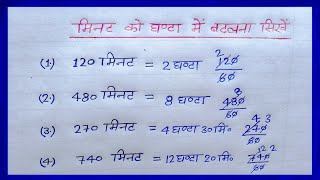 मिनट को घण्टा में बदलना सिखें
(1.) 120 मिनट = 2 घण्टा 2 120/60
(2.) 480 मिनट = 8 घण्टा 8 480/60
(3.) 270 मिनट = 4 घण्टा 30 मि० 4 3 240/60
(4.) 740 मिनट = 12 घण्टा 20 मि० 12 2 740/60